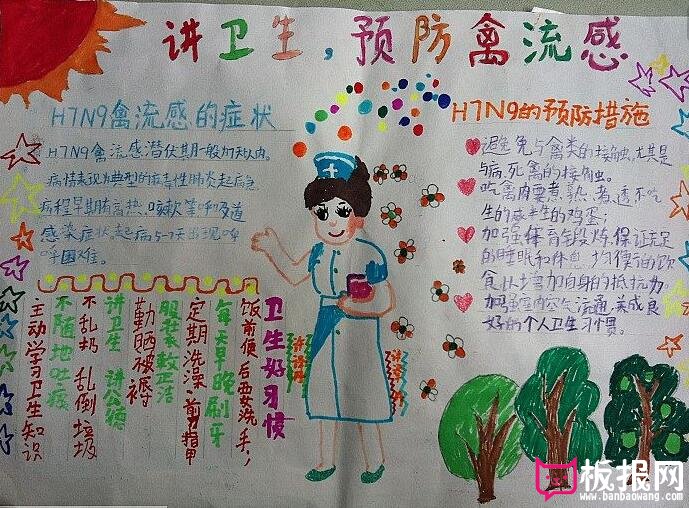 讲卫生,预防禽流感
H7N9禽流感的症状
H7N9禽流感潜伏期一般为7天以内。
病情表现为典型的病毒性肺炎起病急
病程早期有高热、咳嗽等呼吸道
感染症状,起病5-7天出现呼
吸困难。
H7N9的预防措施
避免与禽类的接触,尤其是
与病,死禽的接触。
吃禽肉要煮熟、煮透不吃
生的或半生的鸡蛋;
加强体育锻炼,保证充足
的睡眠和休息,均衡的饮
食以增加自身的抵抗力
加强室内空气流通,养成良
好的个人卫生习惯。
卫生好习惯
饭前便后要洗手,
每天早晚刷牙
定期洗澡 剪指甲
服装整洁
勤晒被褥
讲卫生 讲公德
不乱扔 乱倒垃圾
不随地吐痰
主动学习卫生知识
板报网
www.banbaowang.com